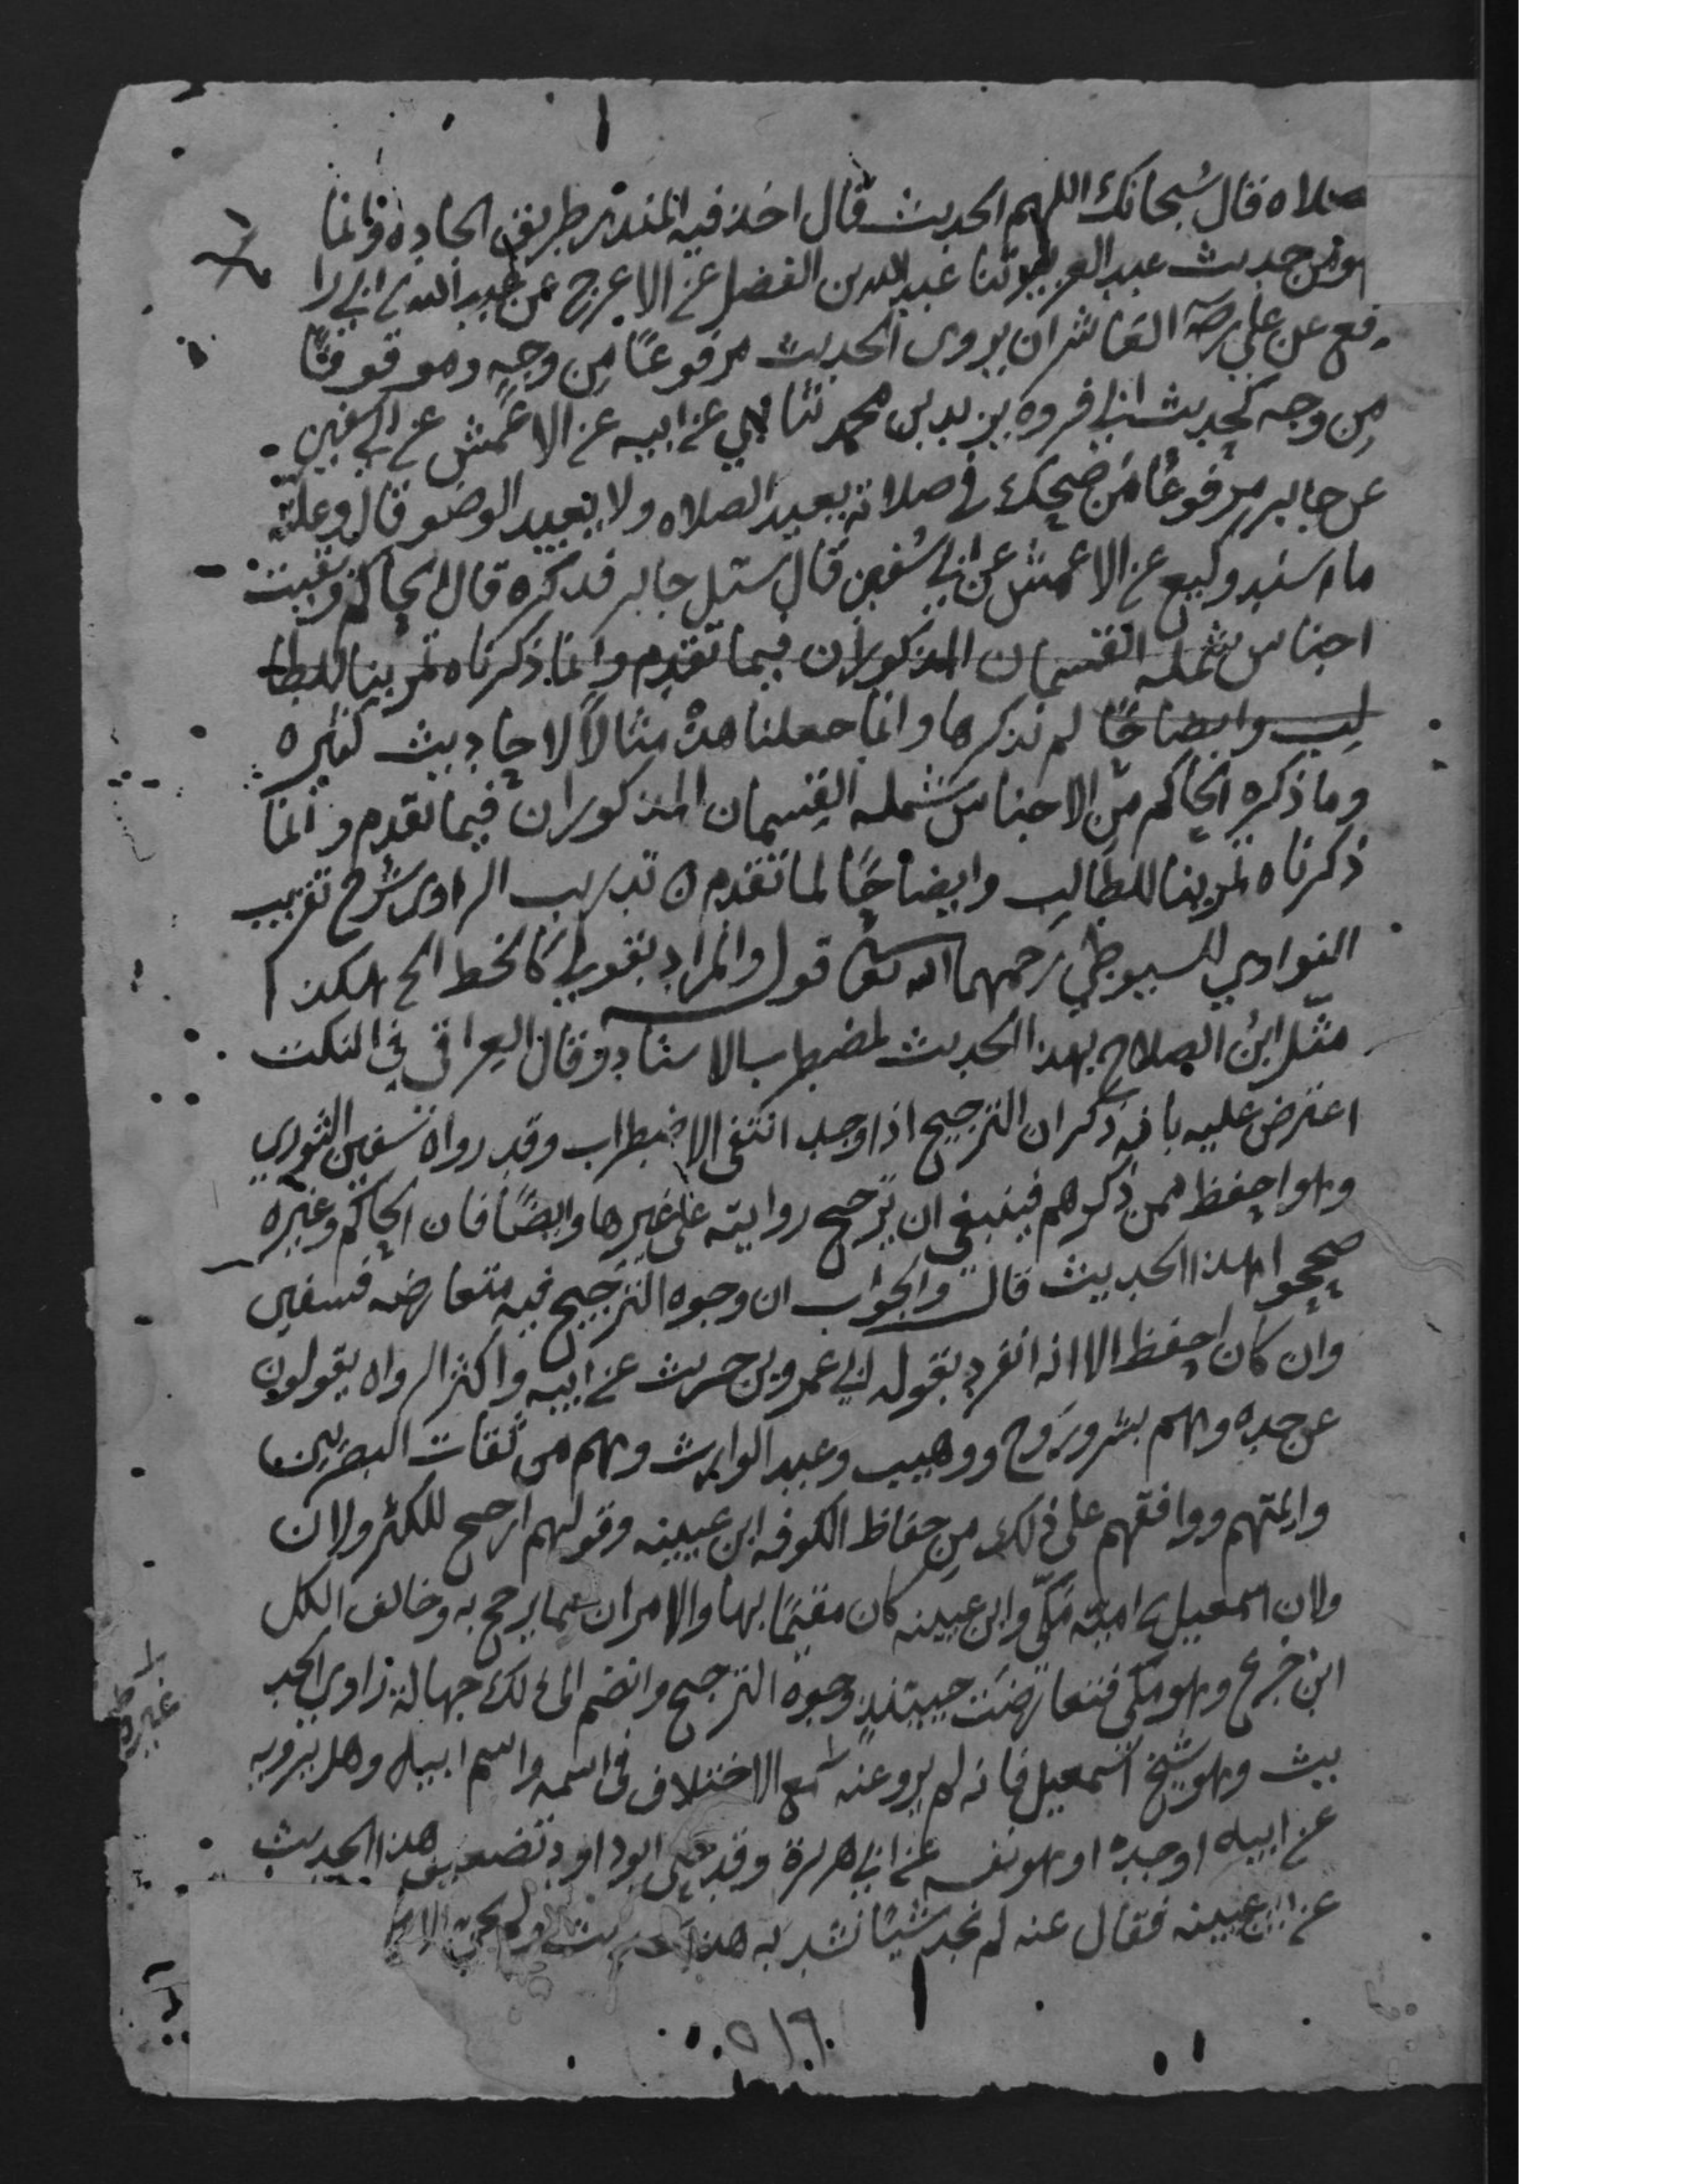 صلاه قال سُبحانك اللهم الحديث قال اخذ فيه المنذر طريق الجاده وانما
هو من حديث عبد العزيز ثنا عبد الله بن الفضل عن الاعرج عن عبيد الله بن ابي را
فع عن علي رضه العاشر ان يروى الحديث مرفوعًا مِن وجهٍ وموقوفًا
مِن وجه كحديث ابي فروه يزيد بن محمد ثنا ابي عن ابيه عن الاعمش عن ابي سفين
عن جابر مرفوعًا من ضحك في صلاته يعيد الصلاه ولا يعيد الوضو قال وعلته
ما اسند وكيع عن الاعمش عن ابي سُفين قال سئل جابر فذكره قال الحاكم وبقيت
اجناس شمله القسمان المذكوران فيما تقدم وانما ذكرناه تمرينا للطا
لب وايضاحًا لم نذكرها وانما جعلنا هذه مثالاً لاحاديث كثيره
وما ذكره الحاكم من الاجناس يشمله القسمان المذكوران فيما تقدم وانما
ذكرناه تمرينا للطالب وايضاحًا لما تقدم ن تدريب الراوي شرح تقريب
النواوي للسيوطي رحمهما الله تعا قول والمراد بقولي كالخط الخ هكذا
مثّل ابن الصلاح بهذا الحديث لمضطرب الاسناد وقال العراقي في النكت
اعترض عليه بانه ذكر ان الترجيح اذا وجد انتفى الاضطراب وقد رواه سفين الثوري
وهو احفظ ممن ذكرهم فينبغي ان ترجح روايته على غيرها وايضًا فان الحاكم وغيره
صححوا هذا الحديث قال والجواب ان وجوه الترجيح فيه متعارضه فسفين
وان كان احفظ الا انه انفرد بقوله ابي عمرو بن حريث عن ابيه واكثر الرواه يقولون
عن جده وهم بشر وروح ووهيب وعبد الوارث وهم من ثقات البصريين
وايمتهم ووافقهم على ذلك مِن حفاظ الكوفه ابن عيينه وقولهم ارجح للكثر ولان
ولان اسمعيل بن اميه مَكّي وابن عيينه كان مقيمًا بها والامران مما يرجح به وخالف الكل
ابن جريج وهو مكي فتعارضت حينئذٍ وجوه الترجيح وانضم الى ذلك جهالة راوي الحد
يث وهو شيخ اسمعيل فانه لم يرو عنه مع الاختلاف في اسمه واسم ابيه وهل يرويه
غيره
عن ابيه او جده او هو نفسه عن ابي هريرة وقد حكى ابو داود تضعيف هذا الحديث
عن ابن عيينه فقال عنه لم نجد شيًا نشد به هذا الحديث ولم يجئ الا